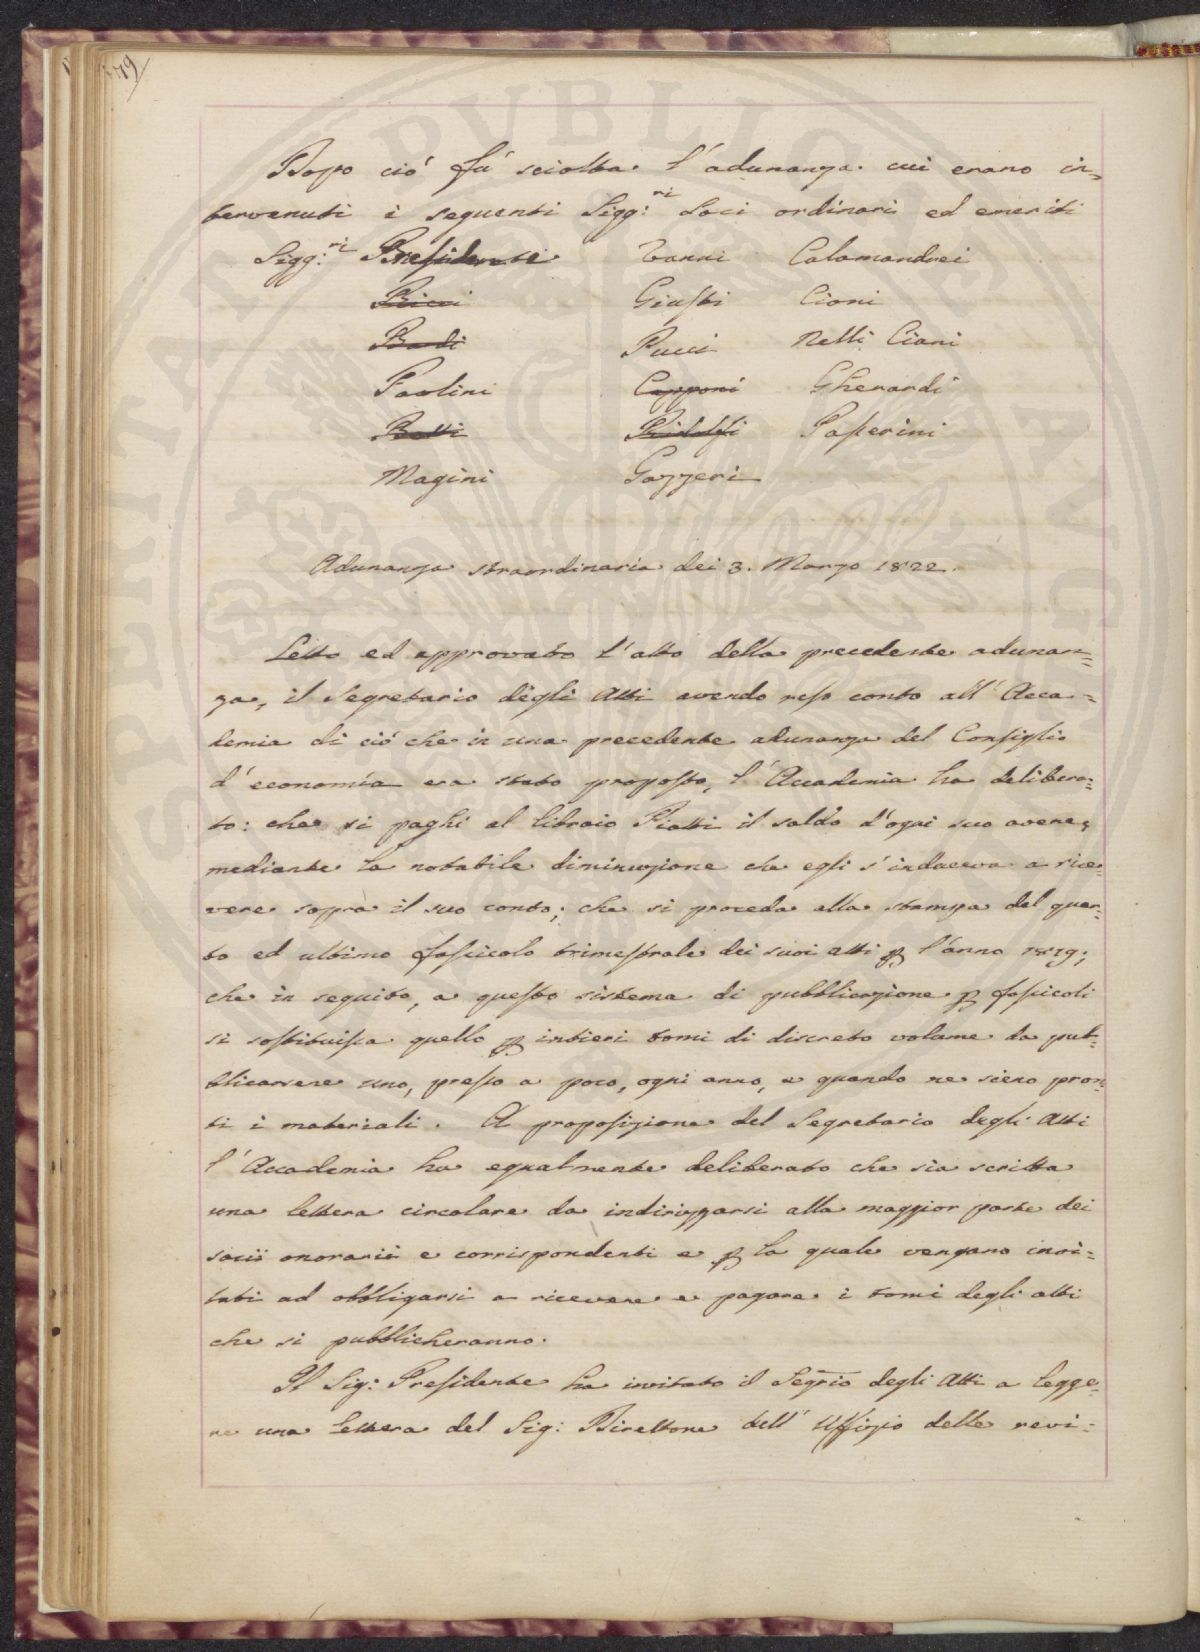 Dopo ciò fu sciolta l'adunanza cui erano in=
tervenuti i seguenti Sigg:ri Soci ordinari ed emeriti
Sigg:ri Presidente Vanni Calamandrei
Ricci Giusti Cioni
Pucci Nelli Ciani
Paolini Capponi Gherardi
Ridolfi Passerini
Magini Gazzeri
Adunanza straordinaria dei 3. Marzo 1822.
Letto ed approvato l'atto della precedente adunan=
za, il Segretario degli Atti avendo reso conto all'Acca=
demia di ciò che in una precedente adunanza del Consiglio
d'economia era stato proposto, l'Accademia ha delibera=
to: che si paghi al libraio Piatti il saldo d'ogni suo avere,
mediante la notabile diminuzione che egli s'induceva a rice=
vere sopra il suo conto; che si proceda alla stampa del quar=
to ed ultimo fascicolo trimestrale dei suoi atti p l'anno 1819;
che in seguito, a questo sistema di pubblicazione p fascicoli
si sostituisca quello p intieri tomi di discreto volume da pub=
blicarsene uno, presso a poco, ogni anno, e quando ne sieno pron=
ti i materiali. A proposizione del Segretario degli Atti
l'Accademia ha egualmente deliberato che sia scritta
una lettera circolare da indirizzarsi alla maggior parte dei
socii onorarii e corrispondenti e p la quale vengano invi=
tati ad obbligarsi a ricevere e pagare i tomi degli atti
che si pubblicheranno.
Il Sig: Presidente ha invitato il Segrio degli Atti a legge=
re una lettera del Sig: Direttore dell'Uffizio delle revi=